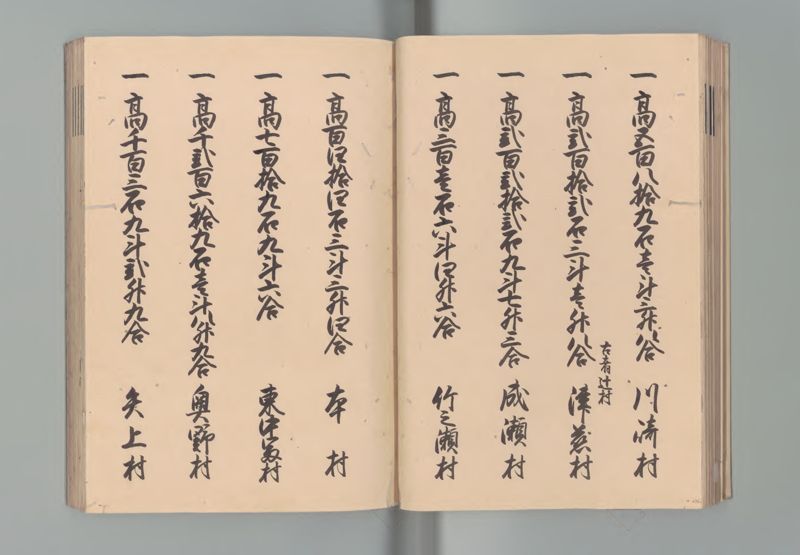 一 高五百八拾九石壱斗三升八合 川済村
一 高弐百拾弐石三斗壱升八合 津葱村
古者辻村
一 高弐百弐拾弐石九斗七升三合 成瀬村
一 高三百壱石六斗四升六合 竹之瀬村
一 高百四拾四石三斗三升四合 本村
一 高七百拾九石九斗六合 東津留村
一 高千弐百六拾九石壱斗八升九合 奥野村
一 高千百三石九斗弐升九合 矢上村